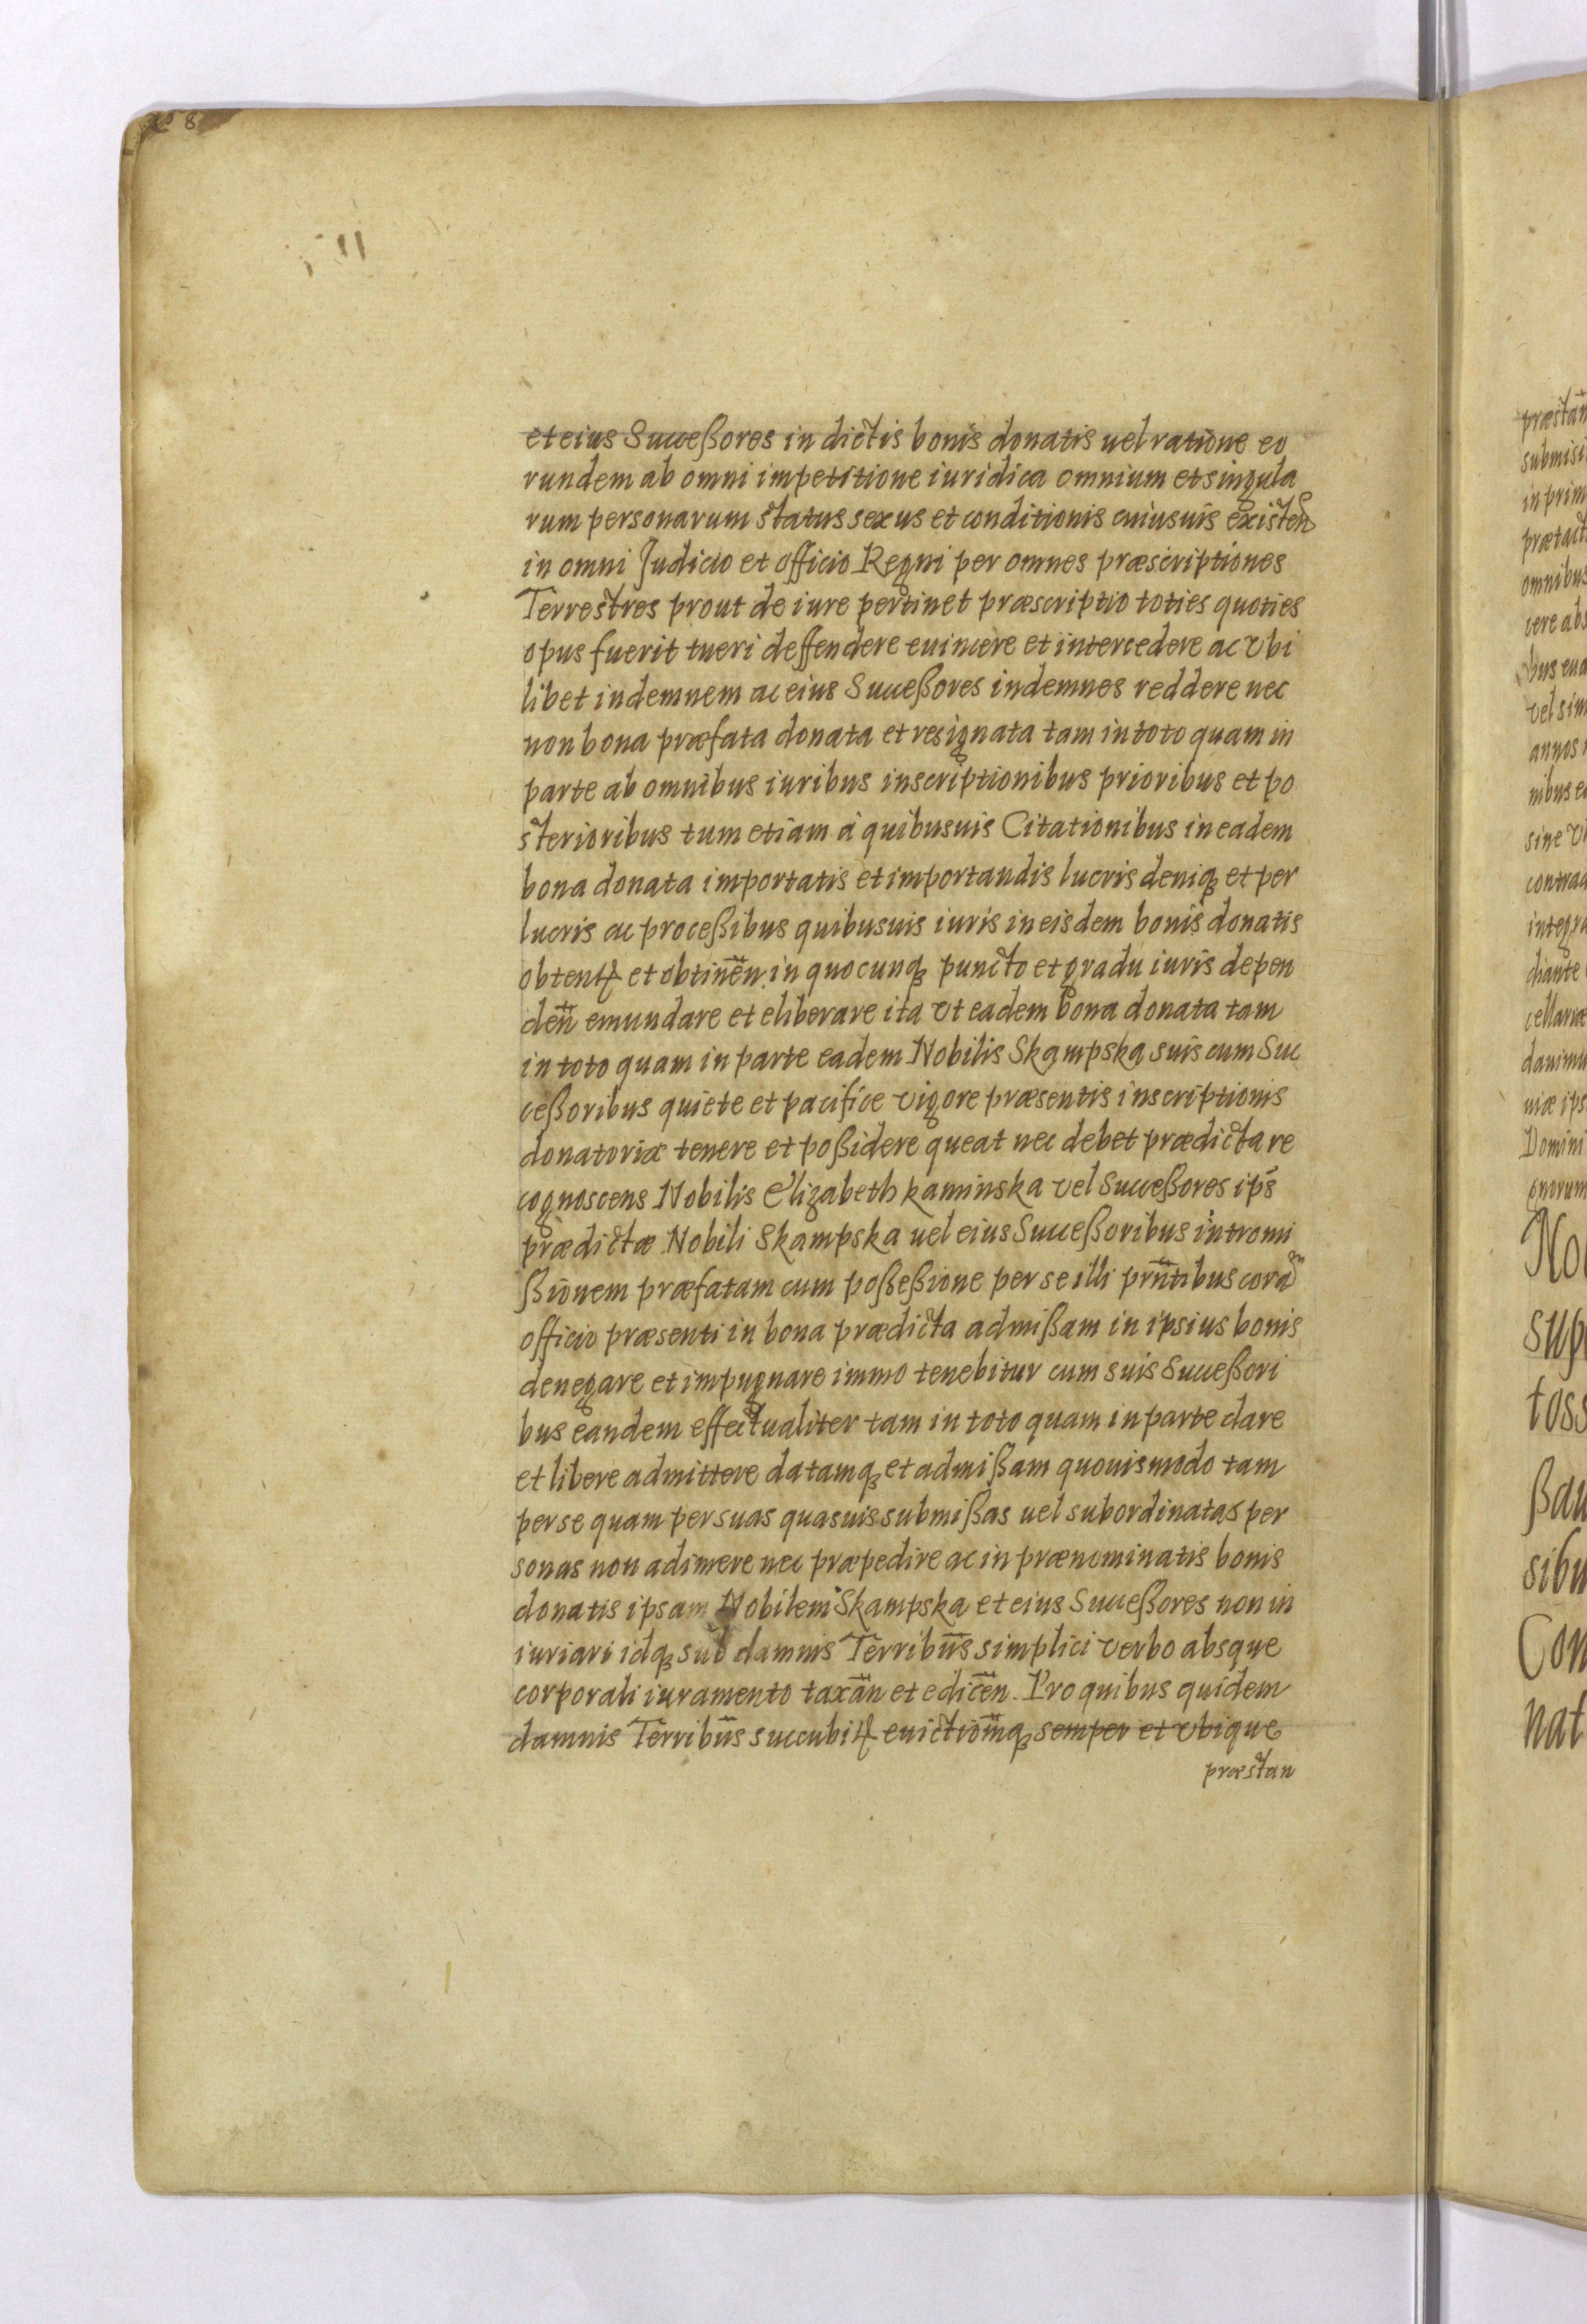 et eius Succeßores in dictis bonis donatis uel ratione eo
rundem ab omni impetitione iuridica omnium et singula
rum personarum status sexus et conditionis cuiusuis existen̄
in omni Judicio et officio Regni per omnes præscriptiones
Terrestres prout de iure pertinet præscriptio toties quoties
opus fuerit tueri deffendere euincere et intercedere ac vbi
libet indemnem ac eius Succeßores indemnes reddere nec
non bona præfata donata et resignata tam in toto quam in
parte ab omnibus iuribus inscriptionibus prioribus et po
sterioribus tum etiam à quibusuis Citationibus in eadem
bona donata importatis et importandis lucris deniqȝ et per
lucris ac proceßibus quibusuis iuris in eisdem bonis donatis
obtentꝭ et obtinen̄ in quocunqȝ puncto et gradu iuris depen
den̄ emundare et eliberare ita vt eadem bona donata tam
in toto quam in parte eadem Nobilis Skampska suis cum Suc
ceßoribus quiete et pacifice vigore præsentis inscriptionis
donatoriæ tenere et poßidere queat nec debet prædicta re
cognoscens Nobilis Elizabeth kaminska vel Succeßores ips̄
prædictæ Nobili Skampska uel eius Succeßoribus intromi
ßionem præfatam cum poßeßione per se illi prn̄tibus coram
officio præsenti in bona prædicta admißam in ipsius bonis
denegare et impugnare immo tenebitur cum suis Succeßori
bus eandem effectualiter tam in toto quam in parte dare
et libere admittere datamqȝ et admißam quouismodo tam
per se quam per suas quasuis submißas uel subordinatas per
sonas non adimere nec præpedire ac in prænominatis bonis
donatis ipsam Nobilem Skampska et eius Succeßores non in
iuriari idqȝ sub damnis Terribūs simplici verbo absque
corporali iuramento taxān et edicēn. Pro quibus quidem
damnis Terribūs succubitꝭ euictiom̄qȝ semper et vbique
præstan